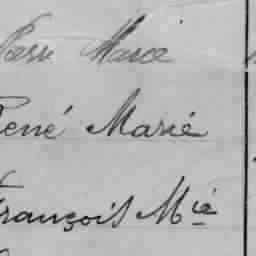 Pierre Marie
René Marie
François Mie